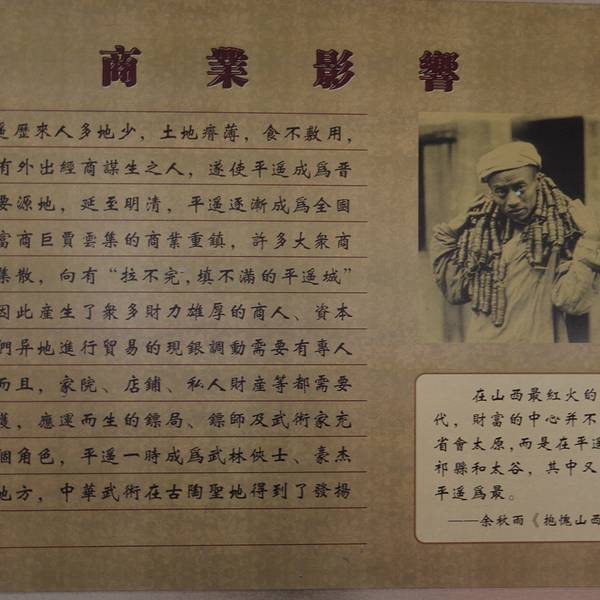 商業影響
遥歷來人多地少，土地瘠薄，食不敷用，
有外出經商謀生之人，遂使平遥成爲晋
要源地，延至明清，平遥逐漸成爲全國
富商巨賈雲集的商業重鎮，許多大衆商
集散，向有“拉不完，填不滿的平遥城”
因此産生了衆多財力雄厚的商人、資本
們异地進行貿易的現銀調動需要有專人
而且，家院、店鋪、私人財産等都需要
護，應運而生的鏢局、鏢師及武術家充
個角色，平遥一時成爲武林俠士、豪杰
地方，中華武術在古陶聖地得到了發揚
在山西最紅火的
代，財富的中心并不
省會太原，而是在平遥
祁縣和太谷，其中又
平遥爲最。
——余秋雨《抱愧山西